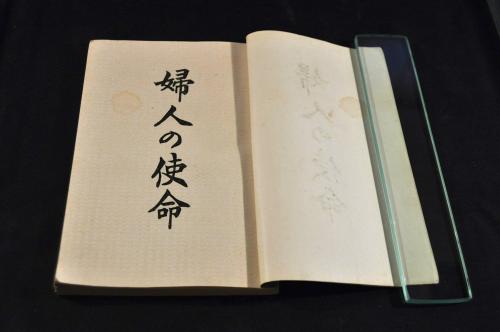 婦人の使命